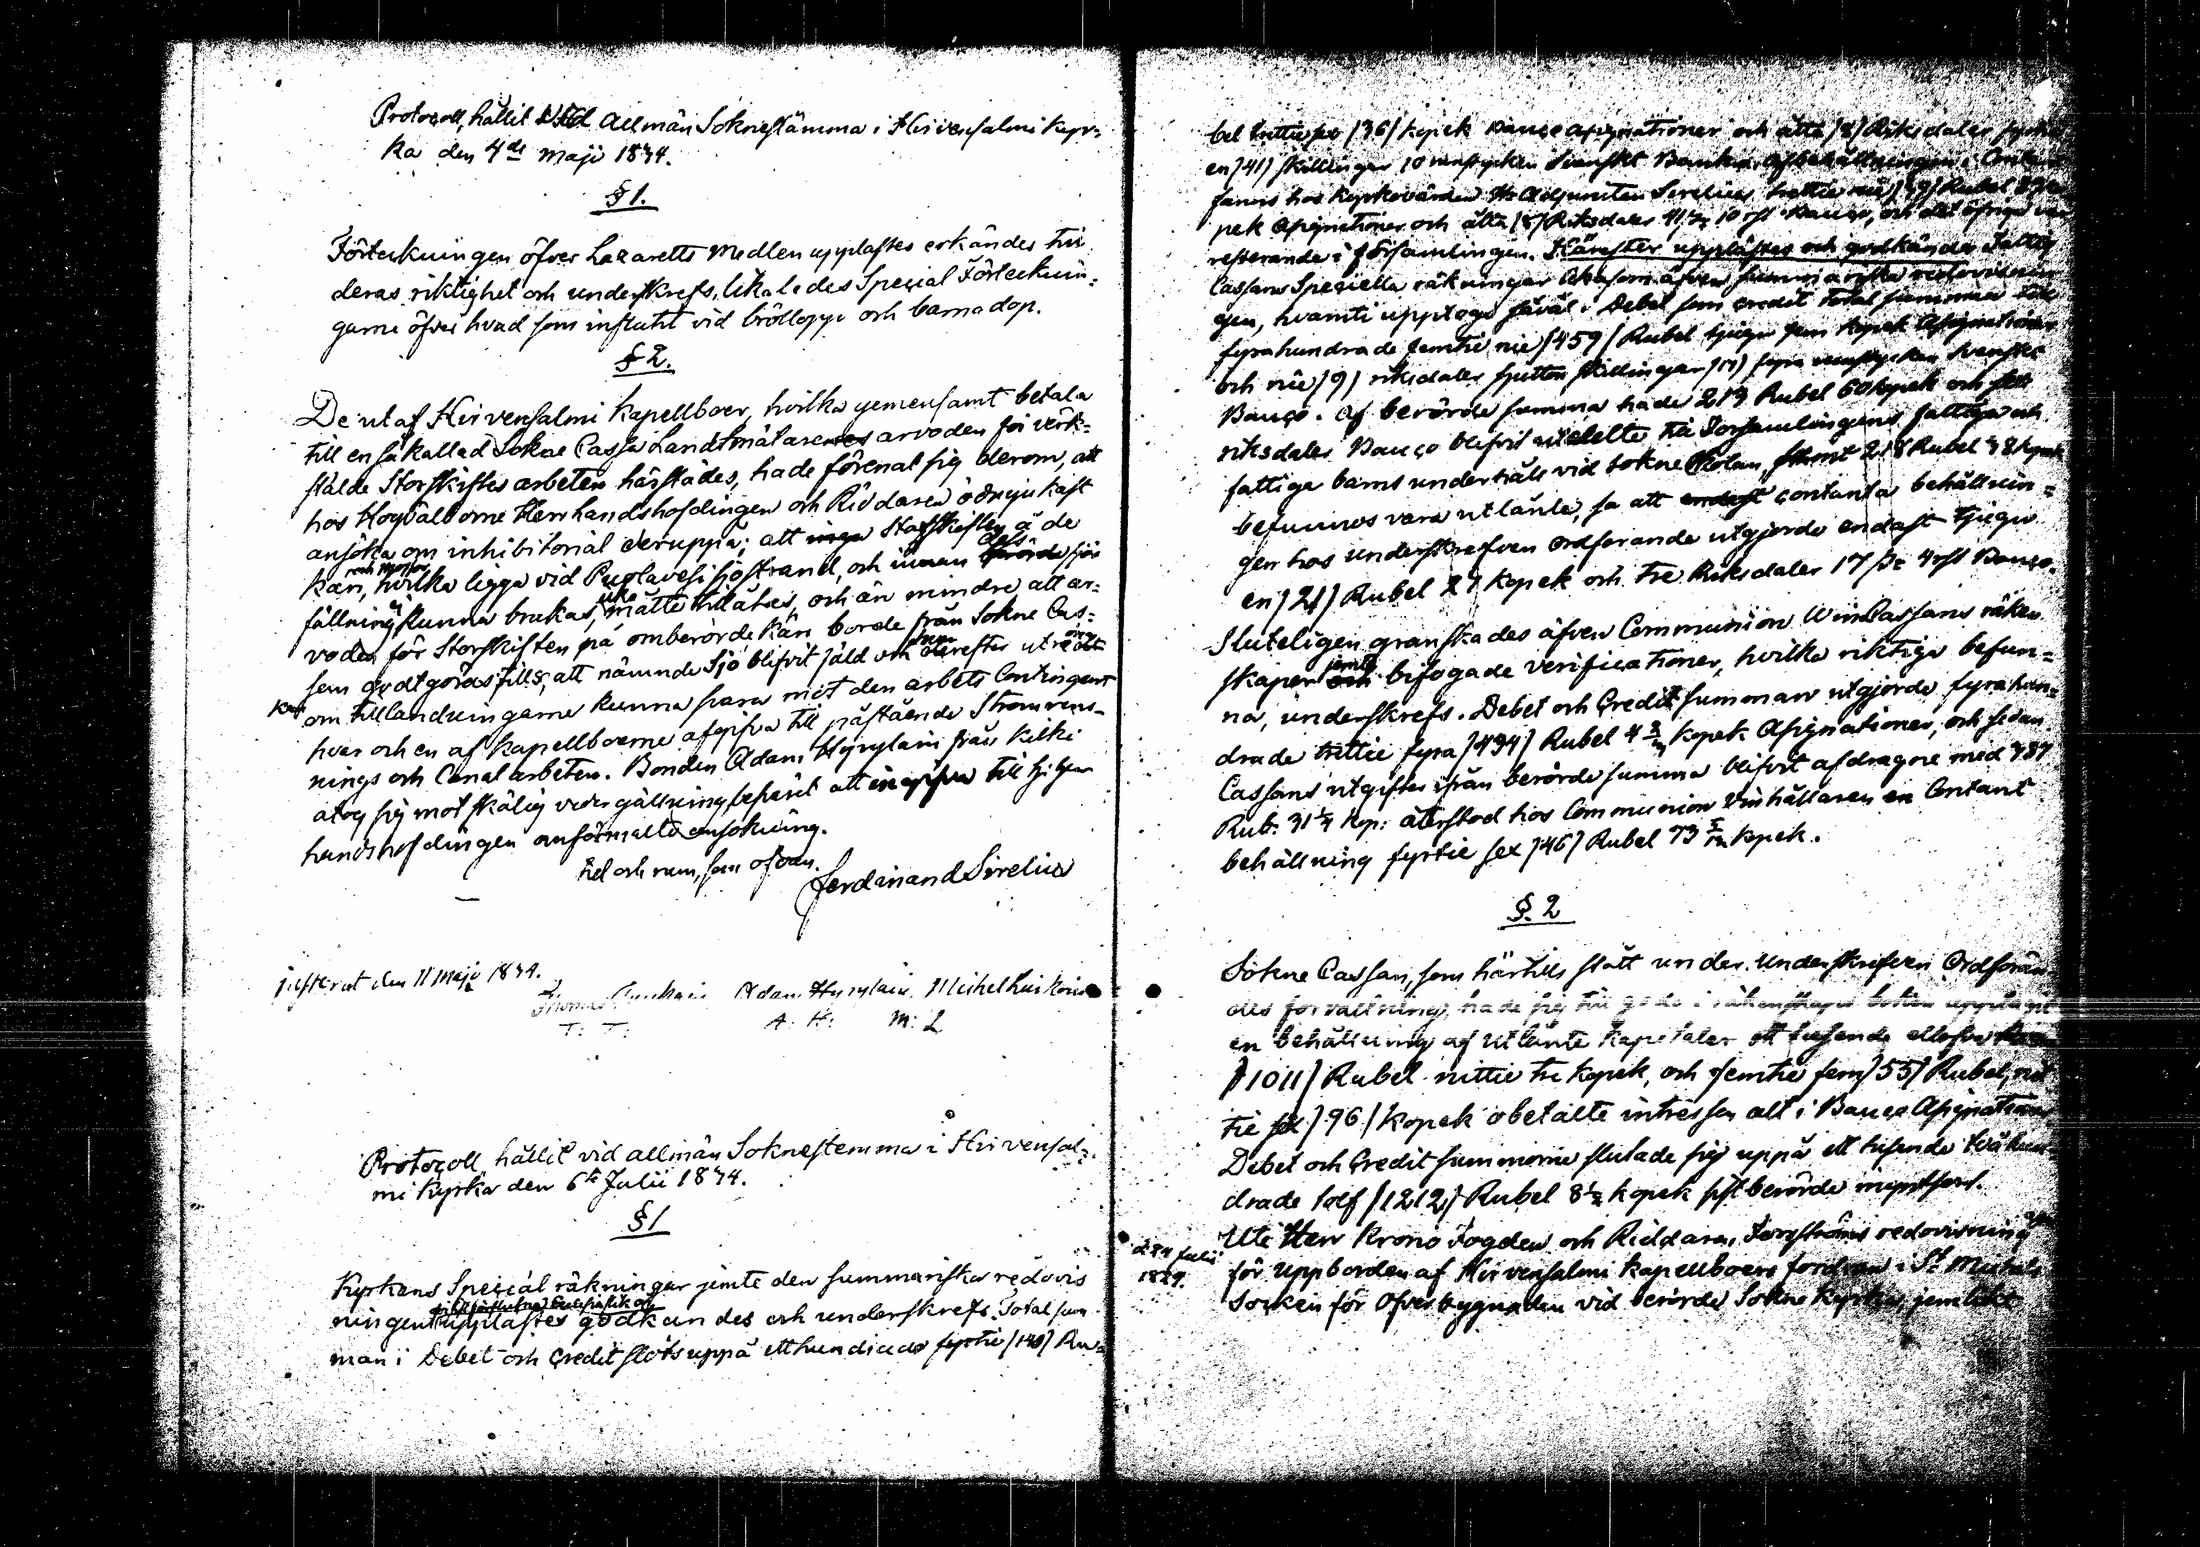 Protocoll, hållit vid allmän Sokneſtämma i Hirvenſalmi Kyr=
ka den 4de Maji 1834.
§ 1.
Förteckningen öfver Lazaretts Medlen upplaſtes erkändes till
deras riktighet och underſkrefs, likaledes Special Förtecknin=
garne öfver hvad ſom influtit vid bröllopp och barnadop.
§ 2.
De utaf Hirvenſalmi Kapellboer, hvilka gemenſamt betala
till en ſåkallad Sokne Caſsa Landtmätarenes arvoden för verk=
ſtälde Storſkiftes arbeten härſtädes, hade förenat ſig derom, att
hos Högvälborne Herr Landshofdingen och Riddaren ödmjukaſt
anſöka om inhibitorial deruppå; att inga Storſkiften å de
kärr, och moſsar hvilka ligga vid Puolaveſi ſjöſtrand, och innan
fällning kunna brukas, måtte tillåtas, och än mindre att ar=
voden för Storſkiften på omberörde kärr borde från Sokne Cas=
ſan godtgöras tills, att nämnde Sjö blifvit fäld och derefter utrönt
om tillandningarne kunna ſvara mot den arbets Contingent
hvar och en af Kapellboerne afgifva till påſtående Strömrens=
nings och Canal arbeten. Bonden Adam Hyrylain från Kilki
åtog ſig mot ſkälig vedergällning beſväret att ingifva till
Landshofdingen anförmälte anſökning.
tid och rum, ſom ofvan.
Ferdinand Sirelius
Juſterat den 11 Maji 1834.
Thomas Adam Hyrylain, Michel
T: T: A: H: M: L
Protocoll, hållit vid allmän Sokneſtemma i Hirvenſal=
mi Kyrka den 6te Julii 1834.
§ 1
Kyrkans Special räkningar jemte den ſummariſka redovis
ningen upplaſtes godkändes och underſkrefs. Total ſum
man i Debet och Credit ſlöts uppå etthundrade fyrtie /140/ Ru=
bel trettie ſex /36/ kopek Banco Aſsignationer och åtta /8/ Riksdaler fyrtie
en /41/ ſkillingar 10 runſtycken Svenſkt Banko. Afbehållningen i Contant
fanns hos Kyrkovärden Hr Adjuncten Sirelius, trettie nie /39/ Rubel
pek Aſsignationer och åtta /8/ Riksdaler 41 ſk 10 rſt Banco, och det öfriga var
reſterande i Församlingen. Härefter uppläſtes och godkändes Fattig
Caſsans Speciella räkningar likaſom äfven ſummariſka redovisnin
gen, hvaruti upptogs ſåväl i Debet ſom credit Total ſumma till
fyrahundrade femtie nie /459/ Rubel tjugu fem kopek Aſsignationer
och nie /9/ riksdaler ſjutton ſkillingar /17/ fyra runſtycken Svenſkt
Banco. Af berörde ſumma hade 219 Rubel 60 kopek och ſex
riksdaler Banco blifvit utdelte till Forſamlingens fattiga och
fattiga barns underhåll vid Sokne Skolan, ſamt 218 Rubel 38 kopek
befunnos vara utlånte, ſa att contanta behållnin=
gen hos underſkrefven Ordförande utgjorde endaſt tjugu
en /21/ Rubel 27 kopek och tre Riksdaler 17 ſk 4 rſt Banco.
Sluteligen granſkades äfven Communion Wins Caſsans räken
ſkaper jemte bifogade verificationer, hvilka riktiga befun=
na, underſkrefs. Debet och Credit ſumman utgjorde fyrahun=
drade trettie fyra /434/ Rubel 4 3/4 kopek Aſsignationer, och ſedan
Caſsans utgifter ifrån berörde ſumma blifvit afdragne med 387
Rub: 31 1/4 kop: återſtod hos Communion Vinhållaren en Contant
behållning fyrtie ſex /46/ Rubel 73 kopek.
§. 2
Sokne Caſsan, ſom härtills ſtått under Underſkrefven Ordföran
des forvaltning, hade ſig till godo i räkenſkaps boken upptagit
en behållning af utlånte Kapitaler ett tuſende ellofva
/1011/ Rubel nittie tre kopek, och femtie fem /55/ Rubel, nit
tie ſex /96/ kopek obetalte intreſſen alt i Banco Aſsignationer
Debet och Credit ſummorne ſlutade ſig uppå ett tuſende tvåhun=
drade tolf /1212/ Rubel 8 1/2 kopek ſiſt berörde myntſort.
Uti Herr Krono Fogden och Riddaren Forſströms redovisning
den Julii
1829.
för uppbörden af Hirvenſalmi Kapellboers fordran i St Michels
Socken för Öfverbyggnaden vid berörde Sokne Kyrka, jemlikt